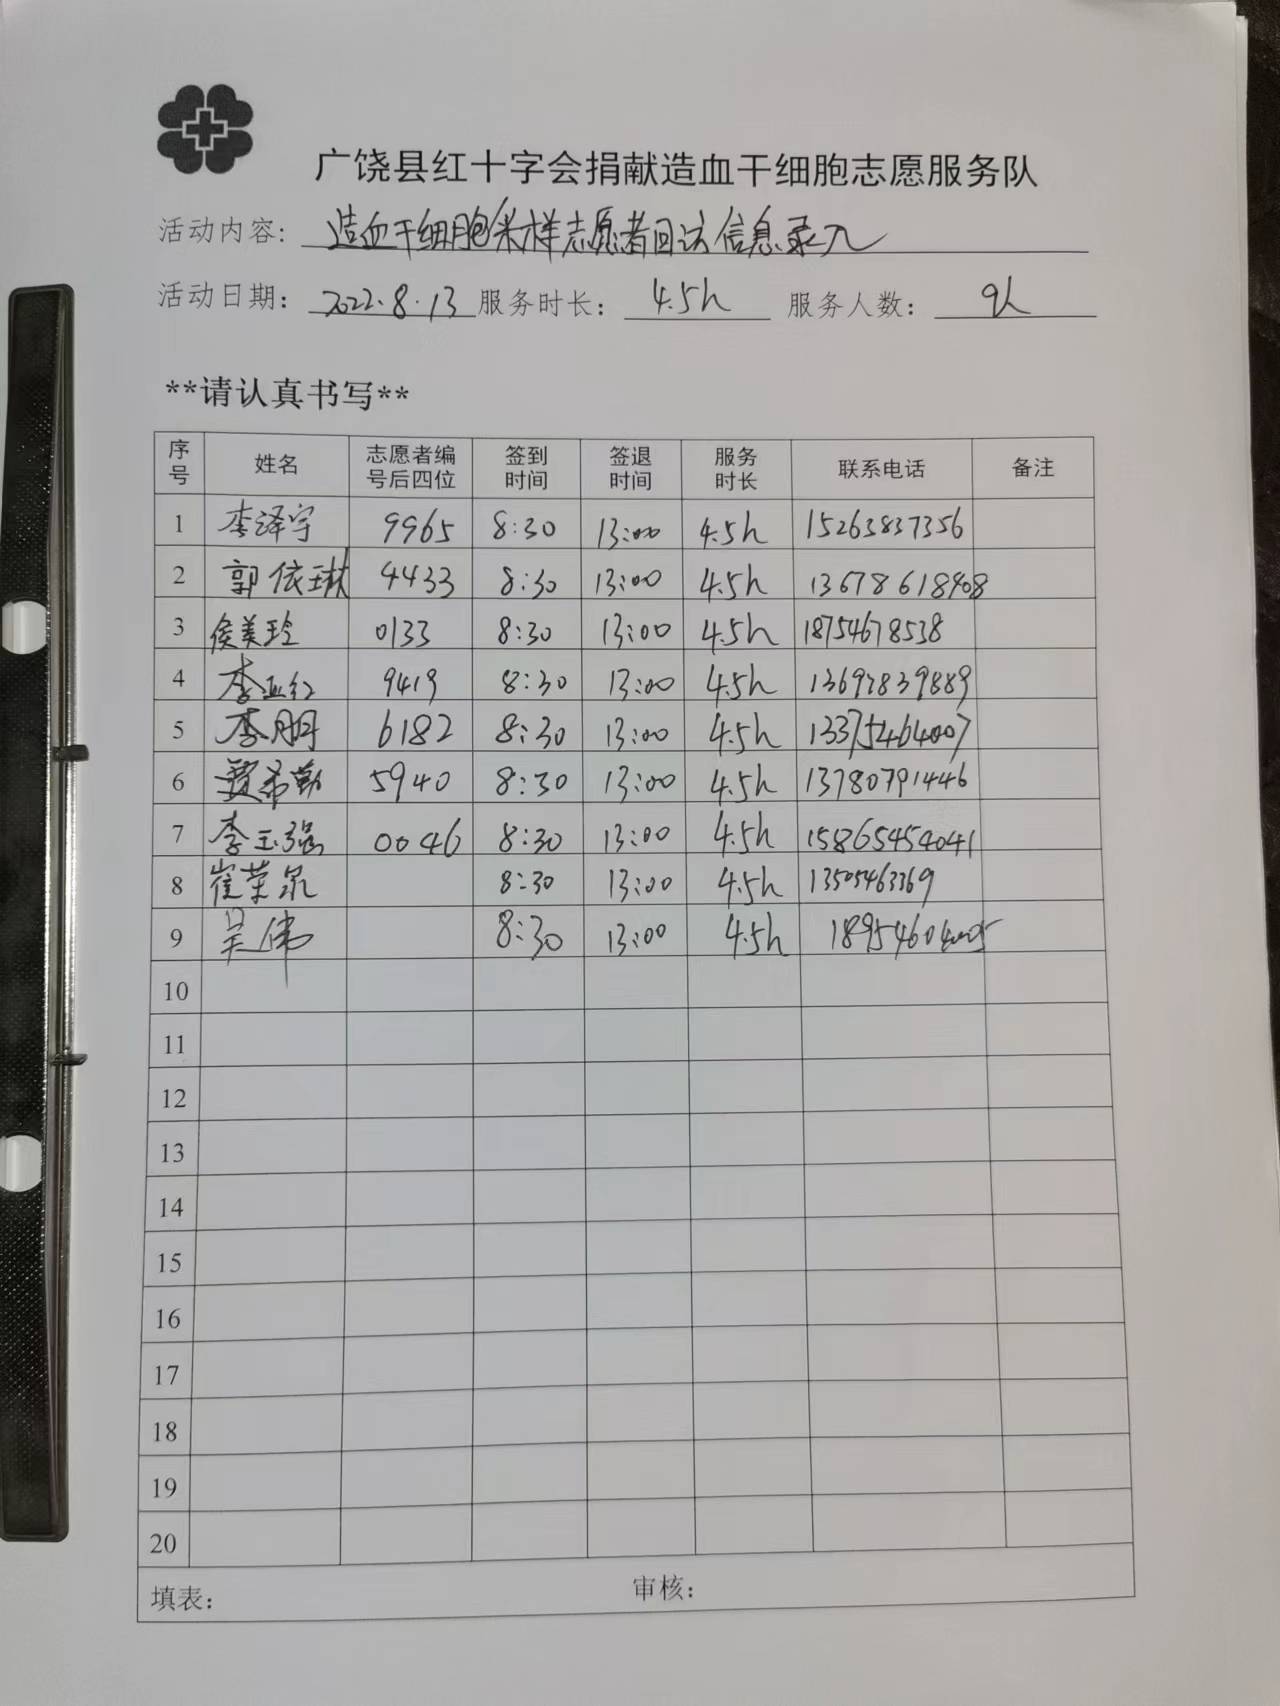 广饶县红十字会捐献造血干细胞志愿服务队
活动内容: 造血干细胞采样志愿者回访信息录入
活动日期: 2022.8.13 服务时长: 4.5h 服务人数: 9人
**请认真书写**
序号 姓名 志愿者编号后四位 签到时间 签退时间 服务时长 联系电话 备注
1 李泽宇 9965 8:30 13:00 4.5h 15263837356
2 郭依琳 4433 8:30 13:00 4.5h 13678618908
3 侯美玲 0133 8:30 13:00 4.5h 18754678538
4 李亚红 9419 8:30 13:00 4.5h 13692839889
5 李朋 6182 8:30 13:00 4.5h 13375464007
6 贾希勤 5940 8:30 13:00 4.5h 13780791446
7 李玉强 0046 8:30 13:00 4.5h 15865454041
8 崔荣泉 8:30 13:00 4.5h 13505463369
9 吴伟 8:30 13:00 4.5h
10
11
12
13
14
15
16
17
18
19
20
填表: 审核: